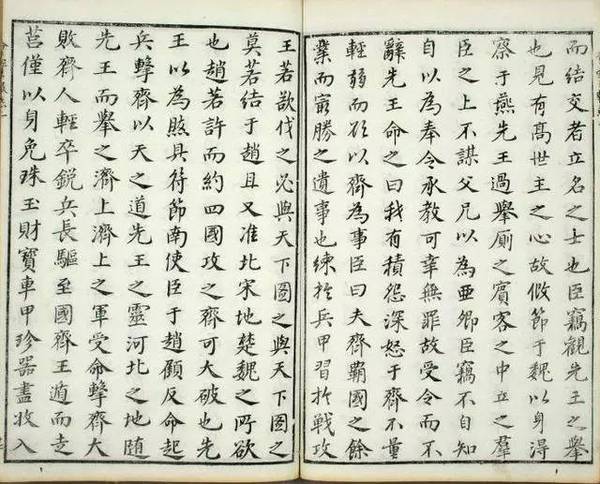 而結交者立名之士也臣竊觀先王之舉
也見有髙世主之心故假節于魏以身得
察于燕先王過舉廁之賔客之中立之羣
臣之上不謀父兄以為亜卿臣竊不自知
自以為奉令承教可幸無罪故受令而不
辭先王命之曰我有積怨深怒于齊不量
輕弱而欲以齊為事臣曰夫齊覇國之餘
業而冣勝之遺事也練扵兵甲習扵戰攻
王若欲伐之必與天下圖之與天下圖之
莫若結于趙且又淮北宋地楚魏之所欲
也趙若許而約四國攻之齊可大破也先
王以為然具符節南使臣于趙顧反命起
兵擊齊以天之道先王之靈河北之地随
先王而舉之濟上濟上之軍受命擊齊大
敗齊人輕卒銳兵長驅至國齊王遁而走
莒僅以身免珠玉財寶車甲珍器盡收入